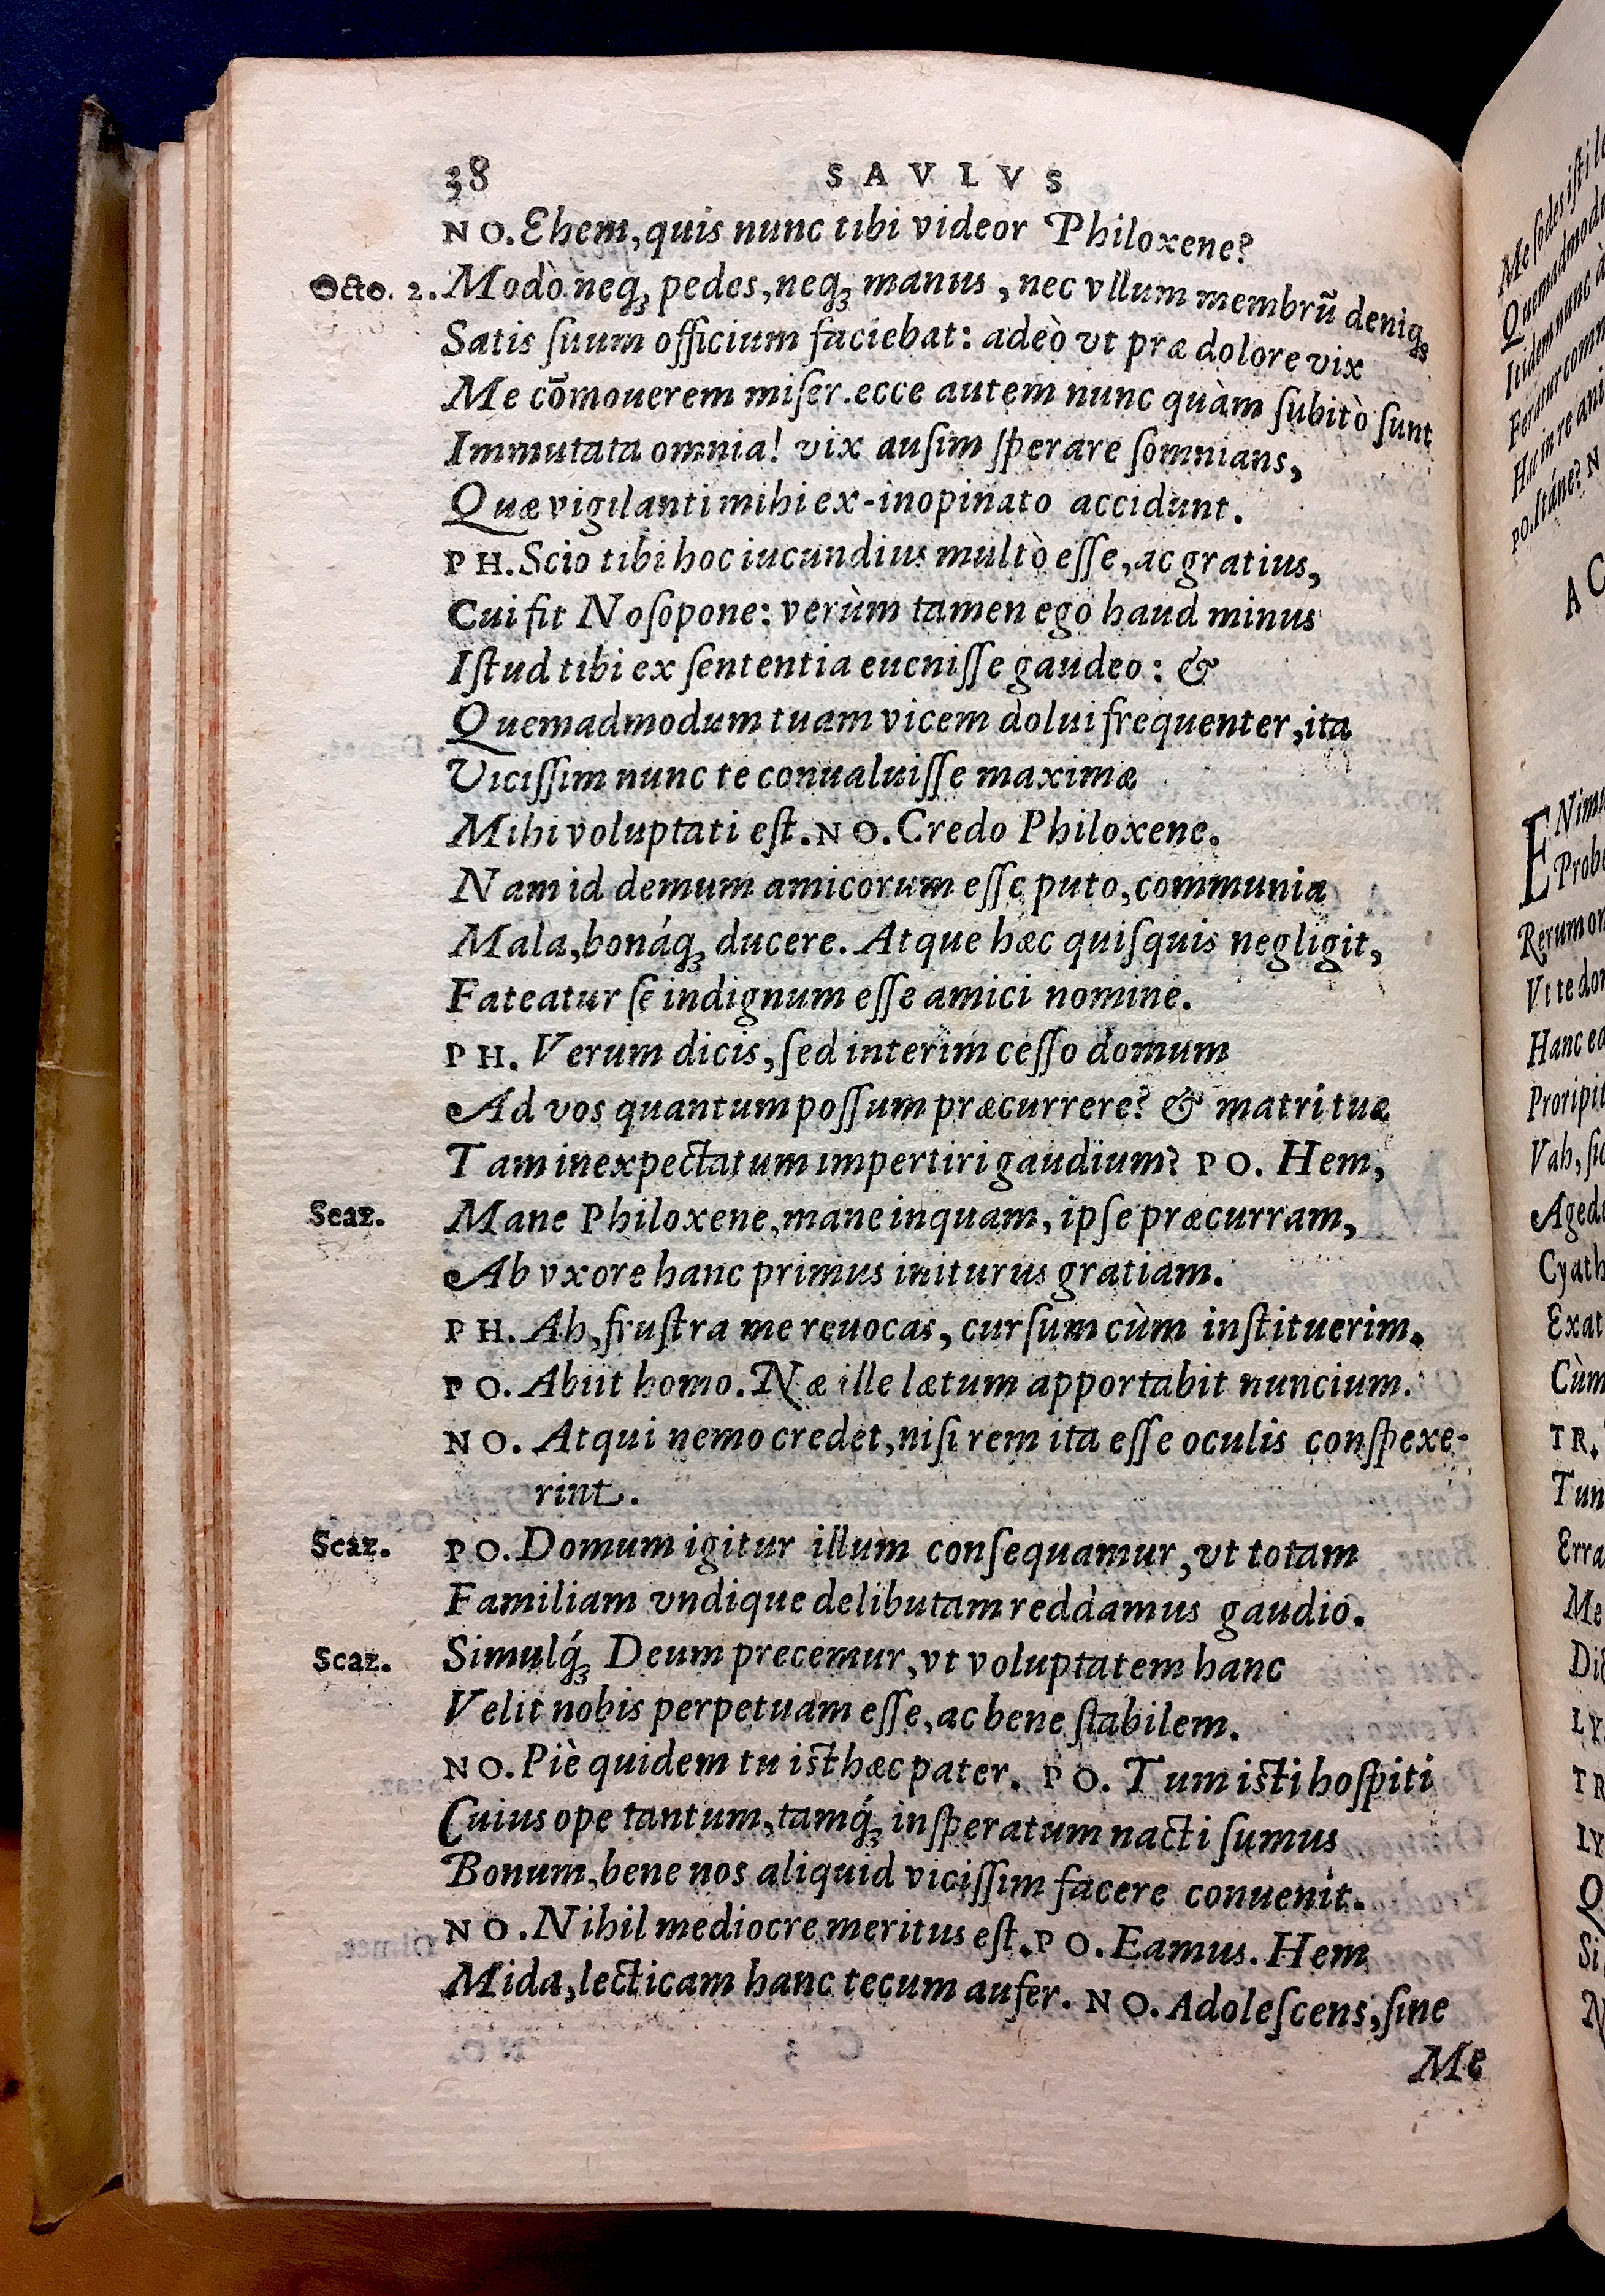 38 SAVLVS
NO. Ehem, quis nunc tibi videor Philoxene?
Octo. 2. Modò neqꝫ pedes, neqꝫ manus, nec vllum membrũ deniqꝫ
Satis ſuum officium faciebat: adeò vt præ dolore vix
Me cõmouerem miſer. ecce autem nunc quàm ſubitò ſunt
Immutata omnia! vix auſim ſperare ſomnians,
Quæ vigilanti mihi ex-inopinato accidunt.
PH. Scio tibi hoc iucundius multò eſſe, ac gratius,
Cui fit Noſopone: verùm tamen ego haud minus
Iſtud tibi ex ſententia eueniſſe gaudeo: &
Quemadmodum tuam vicem dolui frequenter, ita
Viciſſim nunc te conualuiſſe maximæ
Mihi voluptati eſt. NO. Credo Philoxene.
Nam id demum amicorum eſſe puto, communia
Mala, bonáqꝫ ducere. Atque hæc quiſquis negligit,
Fateatur ſe indignum eſſe amici nomine.
PH. Verum dicis, ſed interim ceſſo domum
Ad vos quantum poſſum præcurrere? & matri tuæ
Tam inexpectatum impertiri gaudium? PO. Hem,
Scaz. Mane Philoxene, mane inquam, ipſe præcurram,
Ab vxore hanc primus initurus gratiam.
PH. Ah, fruſtra me reuocas, curſum cùm inſtituerim.
PO. Abiit homo. Næ ille lætum apportabit nuncium.
NO. Atqui nemo credet, niſi rem ita eſſe oculis conſpexe-
rint.
Scaz. PO. Domum igitur illum conſequamur, vt totam
Familiam vndique delibutam reddamus gaudio.
Scaz. Simulqꝫ́ Deum precemur, vt voluptatem hanc
Velit nobis perpetuam eſſe, ac bene ſtabilem.
NO. Piè quidem tu iſthæc pater. PO. Tum iſti hoſpiti
Cuius ope tantum, tamqꝫ́ inſperatum nacti ſumus
Bonum, bene nos aliquid viciſſim facere conuenit.
NO. Nihil mediocre meritus eſt. PO. Eamus. Hem
Mida, lecticam hanc tecum aufer. NO. Adoleſcens, ſine
Me
Me ſodes iſti
Quemadmodu
Itidem nunc à
Feratur comm
Huc in re ani
PO. Itáne? N
AC
ENim
Probe
Rerum
Vt te do
Hanc ea
Proripit
Vah, ſic
Aged
Cyath
Exat
Cùm
TR.
Tun
Erra
Me
Di
LY
TR
LY
Q
Si